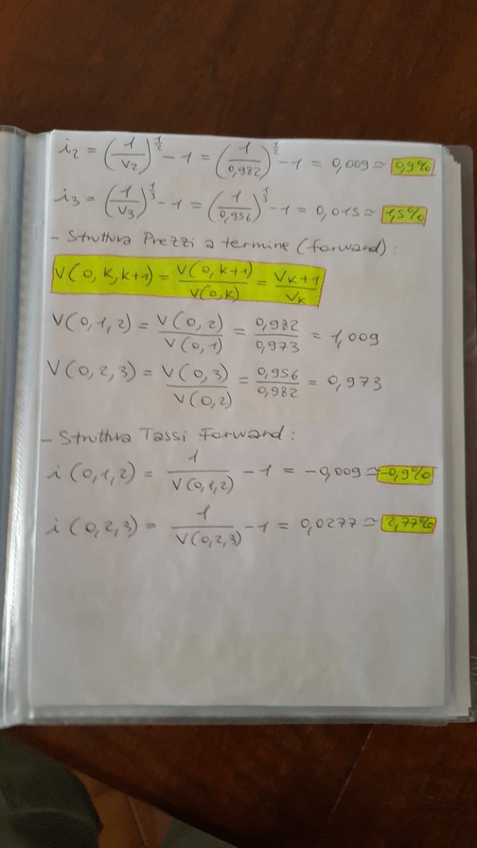 i₂ = (1/V₂)^(1/2) - 1 = (1/0,982)^(1/2) - 1 = 0,009 ≃ 0,9%
i₃ = (1/V₃)^(1/3) - 1 = (1/0,956)^(1/3) - 1 = 0,015 ≃ 1,5%
- Struttura Prezzi a termine (forward):
V(0,K,K+1) = V(0,K+1)/V(0,K) = V_K+1/V_K
V(0,1,2) = V(0,2)/V(0,1) = 0,982/0,973 = 1,009
V(0,2,3) = V(0,3)/V(0,2) = 0,956/0,982 = 0,973
- Struttura Tassi Forward:
i(0,1,2) = 1/V(0,1,2) - 1 = -0,009 ≃ -0,9%
i(0,2,3) = 1/V(0,2,3) - 1 = 0,0277 ≃ 2,77%